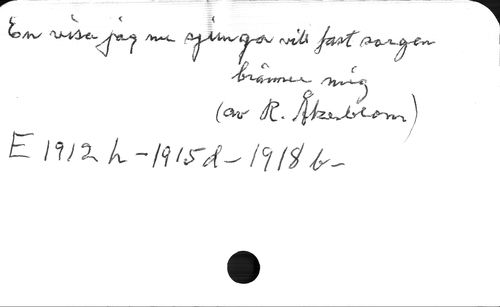 En visa jag nu sjunga vill fast sorgen
bränner mig
(av R. Åkerblom)
E 1912 h - 1915 d - 1918 b -